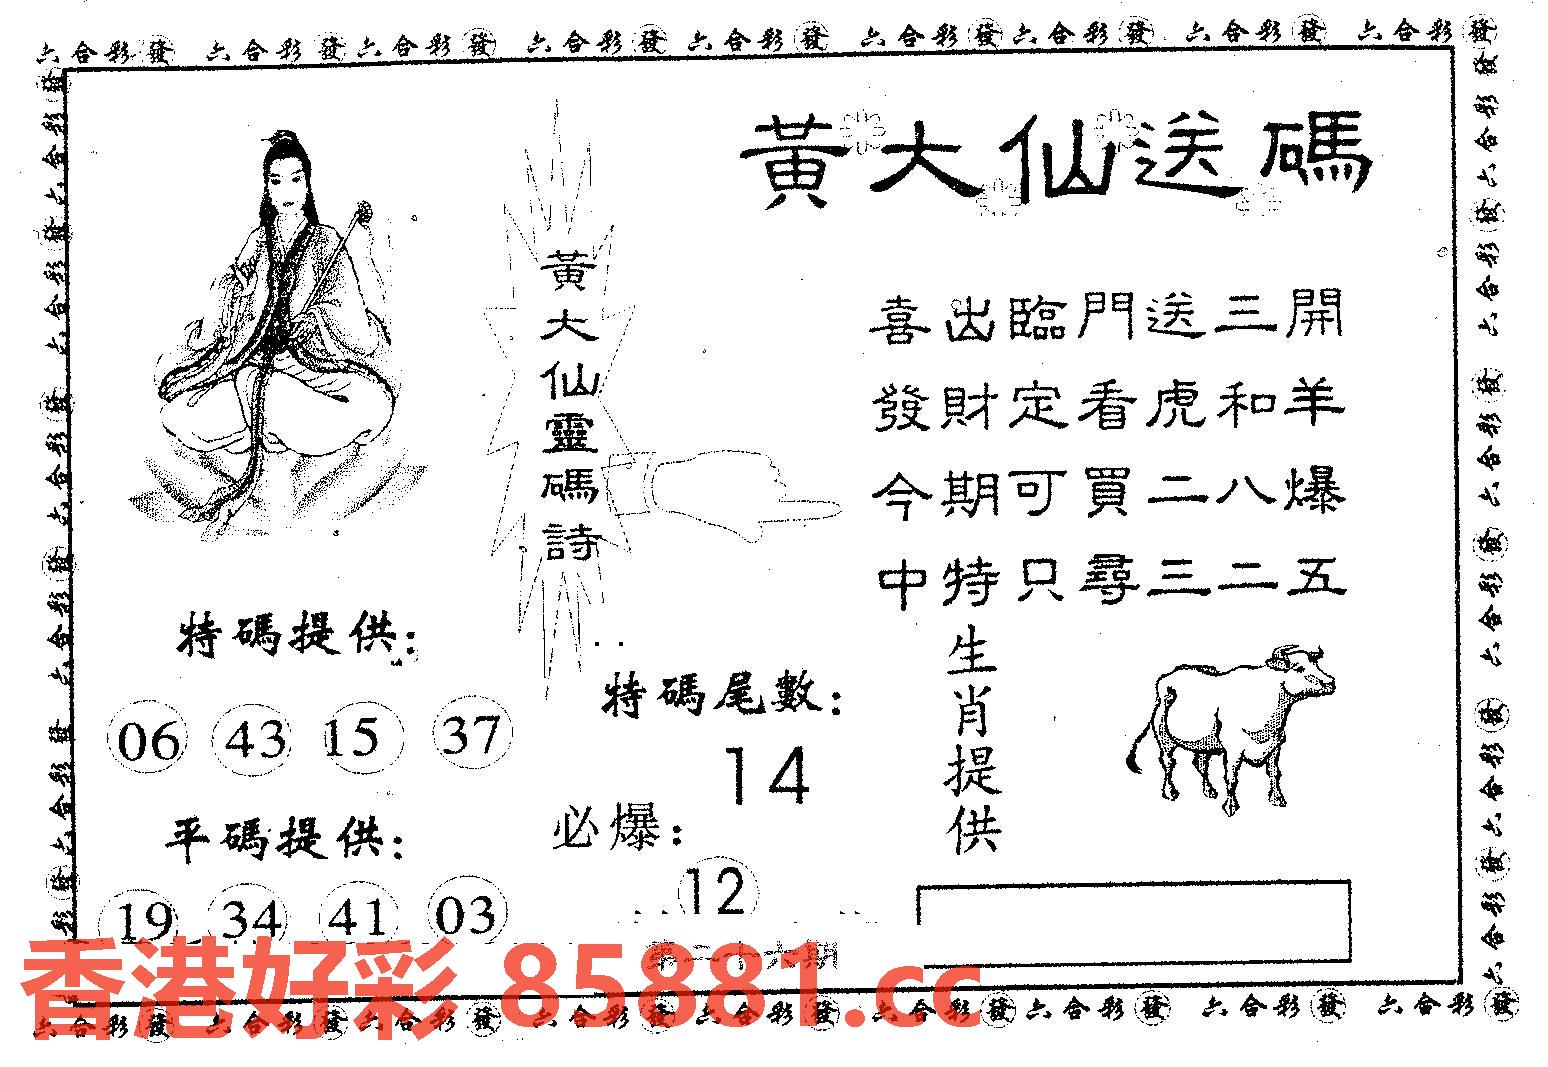 六合彩發 六合彩發 六合彩發 六合彩發 六合彩發 六合彩發 六合彩發 六合彩發 六合彩發
黃大仙送碼
黃大仙靈碼詩
喜出臨門送三開
發財定看虎和羊
今期可買二八爆
中特只尋三二五
特碼提供:
06 43 15 37
平碼提供:
19 34 41 03
特碼尾數:
14
必爆:
12
生肖提供
第二十六期
香港好彩 85881.cc
六合彩發 六合彩發 六合彩發 六合彩發 六合彩發 六合彩發 六合彩發 六合彩發 六合彩發